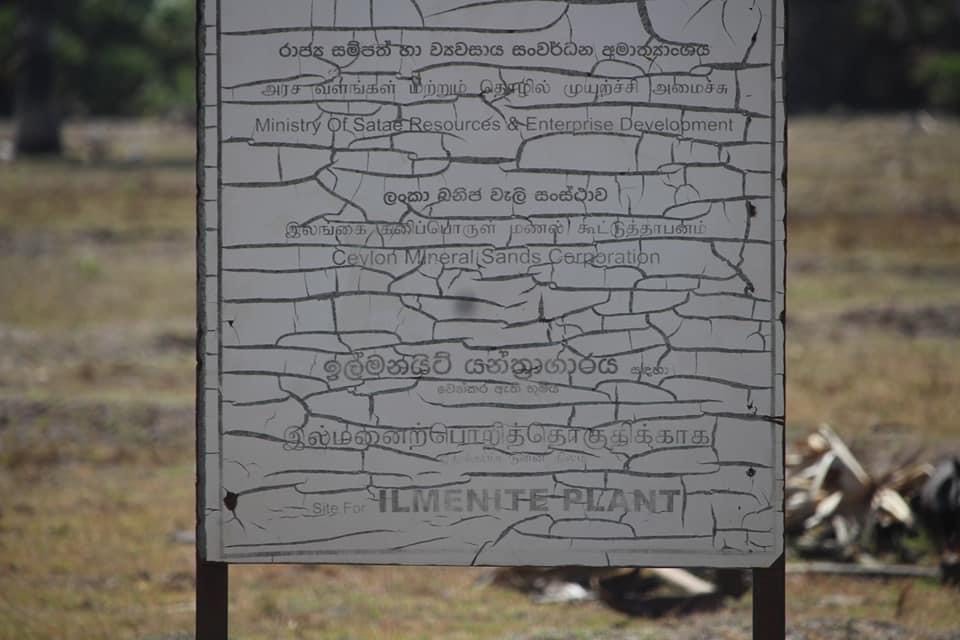 රාජ්‍ය සම්පත් හා ව්‍යවසාය සංවර්ධන අමාත්‍යාංශය
அரச வளங்கள் மற்றும் தொழில் முயற்ச்சி அமைச்சு
Ministry Of Satae Resources & Enterprise Development
ලංකා ඛනිජ වැලි සංස්ථාව
இலங்கை கனிப்பொருள் மணல் கூட்டுத்தாபனம்
Ceylon Mineral Sands Corporation
ඉල්මනයිට් යන්ත්‍රාගාරය සඳහා
වෙන්කර ඇති භූමිය
Site For ILMENITE PLANT